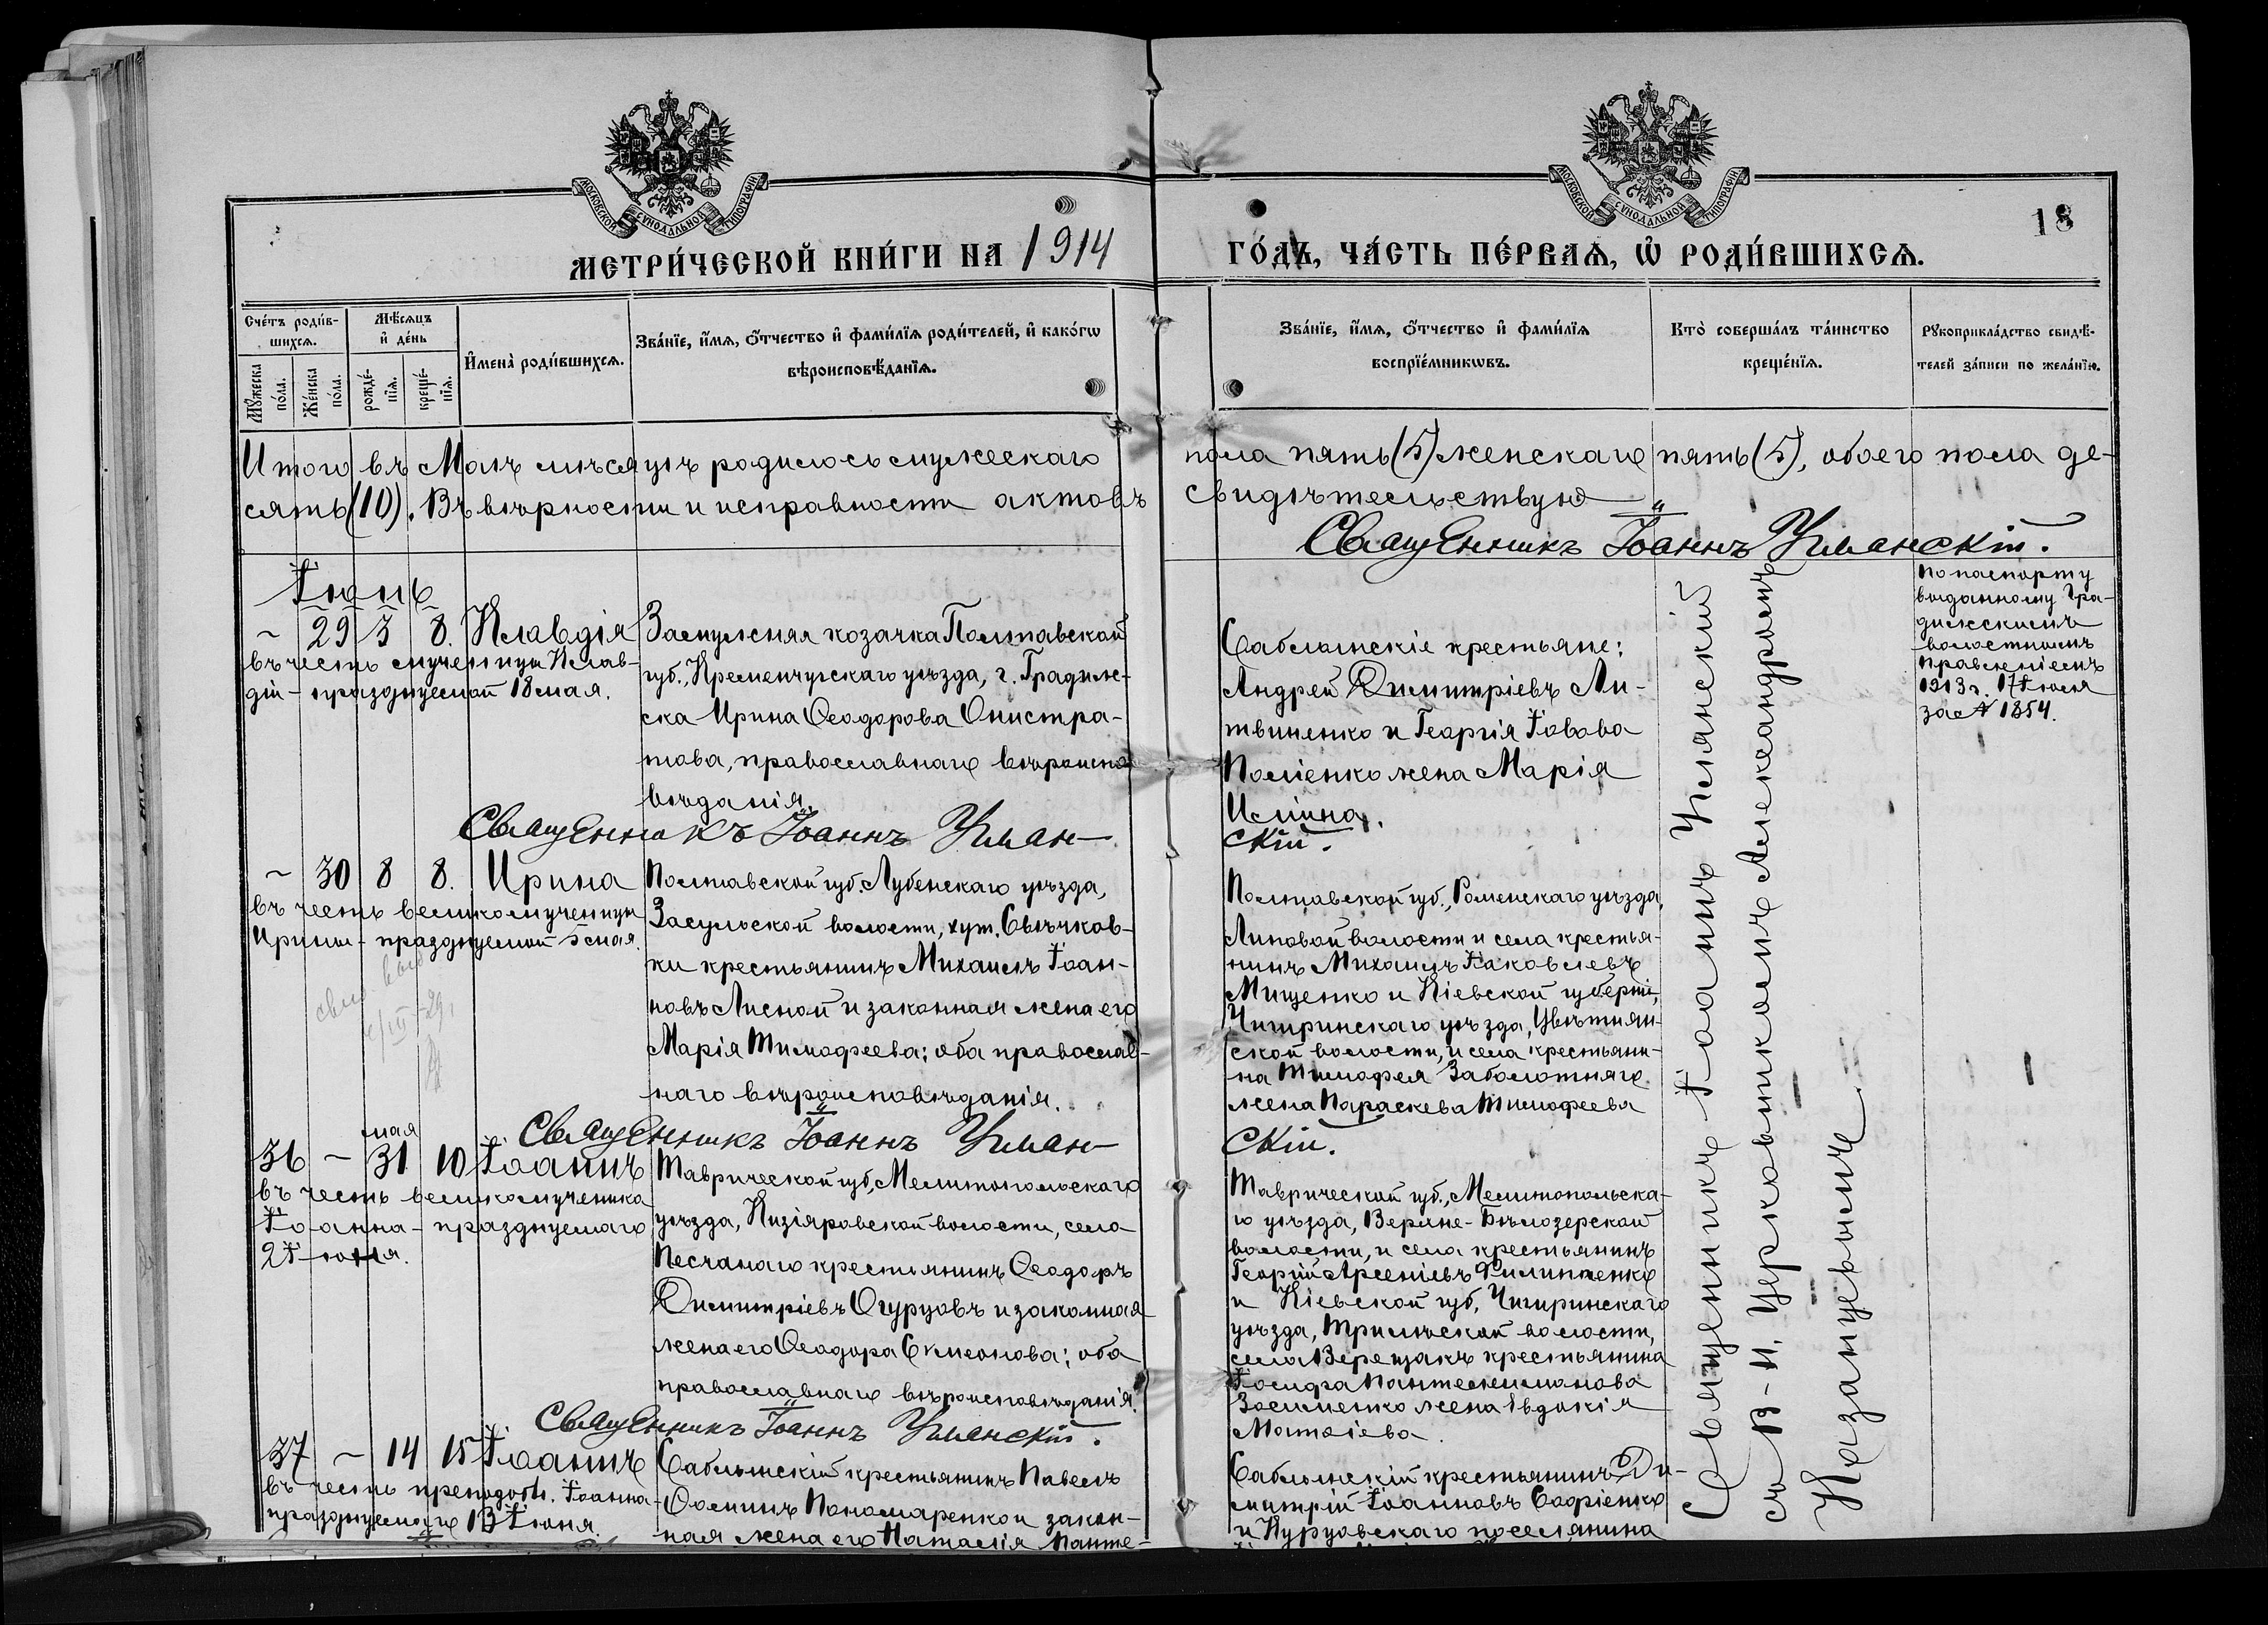 МОСКОВСКОЙ СѴНОДАЛЬНОЙ ТИПОГРАФІИ
МОСКОВСКОЙ СѴНОДАЛЬНОЙ ТИПОГРАФІИ
18
МЕТРИ́ЧЕСКОЙ КНИ́ГИ НА 1914
ГО́ДЪ, ЧА́СТЬ ПЕ́РВАѦ, Ѽ РОДИ́ВШИХСѦ.
Сче́тъ роди́в-
шихсѧ.
Мꙋ́жеска по́ла.
Же́нска по́ла.
Мѣ́сѧцъ и҆ де́нь
рожде́-
нїѧ.
креще́-
нїѧ.
И҆мена̀ роди́вшихсѧ.
Зва́нїе, и҆́мѧ, ѻ҆́тчество и҆ фами́лїѧ роди́телей, и҆ како́гѡ
вѣроисповѣ́данїѧ.
Зва́нїе, и҆́мѧ, ѻ҆́тчество и҆ фами́лїѧ
воспрїе́мникѡвъ.
Кто̀ соверша́лъ та́инство
креще́нїѧ.
Рꙋкоприкла́дство свидѣ́-
телей за́писи по жела́нїю.
Итого въ Маѣ мѣсяцѣ родилось мужескаго пола пять (5) женскаго пять (5), обоего пола де-
сять (10). Въ вѣрности и исправности актовъ свидѣтельствую
Священникъ Іоаннъ Уманскій.
Іюнь
~ 29 3 8. Клавдія
въ честь мученицы Клав-
діи - празднуемой 18 мая.
Замужняя козачка Полтавской
губ., Кременчугскаго уѣзда, г. Градиж-
ска Ирина Ѳеодорова Онистра-
това, православнаго вѣроиспо-
вѣданія.
Саблынскіе крестьяне:
Андрей Димитріевъ Ли-
твиненко и Георгія Іовова
Поліенко жена Марія
Иліина.
По паспорту
выданному Гра-
дижскимъ
волостнымъ
правленіемъ
1913 г. 17 Іюля
за № 1854.
Священникъ Іоаннъ Уман-
скій.
~ 30 8 8. Ирина
въ честь великомученицы
Ирины - празднуемой 5 мая.
Полтавской губ. Лубенскаго уѣзда,
Засульской волости, хут. Свѣчков-
ки крестьянинъ Михаилъ Іоан-
новъ Лисной и законная жена его
Марія Тимофеева; оба православ-
наго вѣроисповѣданія.
Полтавской губ., Роменскаго уѣзда,
Липовой волости и села крестья-
нинъ Михаилъ Іаковлевъ
Мищенко и Кіевской губерніи,
Чигиринскаго уѣзда, Цвѣтнян-
ской волости, и села крестьяни-
на Тимофея Заболотняго
жена Параскева Тимофеева
Священникъ Іоаннъ Уман-
скій.
мая
36 ~ 31 10 Іоаннъ
въ честь великомученика
Іоанна - празднуемаго
2 Іюня.
Таврической губ., Мелитопольскаго
уѣзда, Кизіяровской волости, села
Песчанаго крестьянинъ Ѳеодоръ
Димитріевъ Огурцовъ и законная
жена его Ѳеодора Симеонова; оба
православнаго вѣроисповѣданія.
Таврической губ., Мелитопольска-
го уѣзда, Верхне-Бѣлозерской
волости, и села крестьянинъ
Георгій Арсеніевъ Филипенко
и Кіевской губ, Чигиринскаго
уѣзда, Трилѣской волости,
села Верещакъ крестьянина
Іосифа Пантелеимонова
Зосименко жена Евдокія
Матѳіева.
Священникъ Іоаннъ Уманскій.
37 ~ 14 15 Іоаннъ
въ честь преподобн. Іоанна-
празднуемаго 13 Іюня.
Саблынскій крестьянинъ Павелъ
Ѳоминъ Пономаренко и закон-
ная жена его Наталія Панте-
Саблынскій крестьянинъ Ди-
митрій Іоанновъ Софіенко
и Курцовскаго поселянина
Священникъ Іоаннъ Уманскій
съ В-И. Церковникомъ Александромъ
Казанцевымъ.